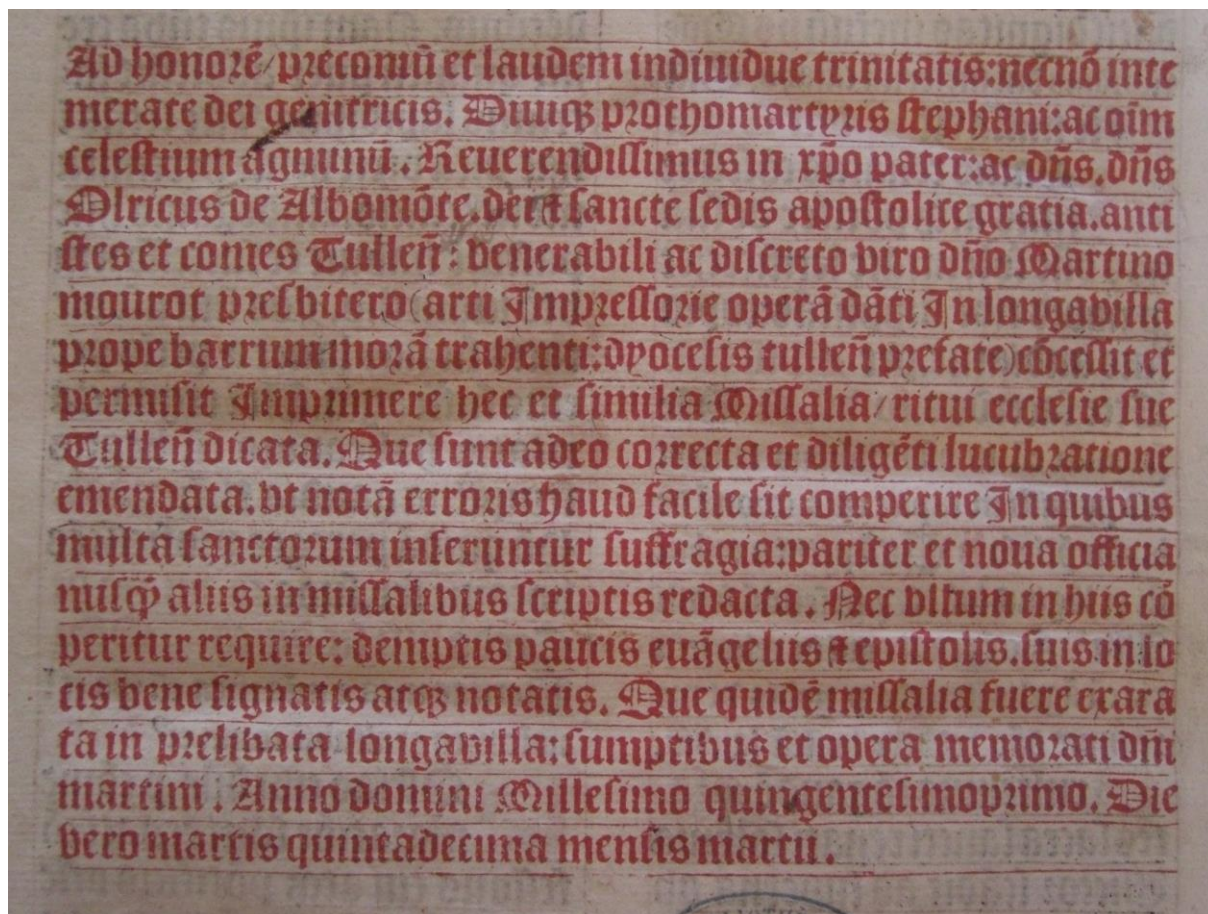 Ad honorē/preconiū et laudem indiuidue trinitatis:necnō inte
merate dei genitricis. Diuiqꝫ prothomartyris stephani:ac oīm
celestium agminū. Reuerendissimus in xp̄o pater:ac dn̄s.dn̄s
Olricus de Albomōte.dei ⁊ sancte sedis apostolice gratia.anti
stes et comes Tulleñ: venerabili ac discreto viro dn̄o Martino
mourot presbitero(arti Impressorie operā dāti In longavilla
prope barrum morā trahenti:dyocesis tulleñ prefate)cōcessit et
permisit Imprimere hec et similia Missalia/ritui ecclesie sue
Tulleñ dicata. Que sunt adeo correcta et diligēti lucubratione
emendata.vt notā erroris haud facile sit comperire In quibus
multa sanctorum inseruntur suffragia:pariter et noua officia
nusqꝫ̄ aliis in missalibus scriptis redacta. Nec vllum in hiis cō
peritur require: demptis paucis euāgeliis ⁊ epistolis.suis in lo
cis bene signatis atqꝫ notatis. Que quidē missalia fuere exara
ta in prelibata longavilla:sumptibus et opera memorati dn̄i
martini. Anno domini Millesimo quingentesimoprimo. Die
vero martis quintadecima mensis martii.